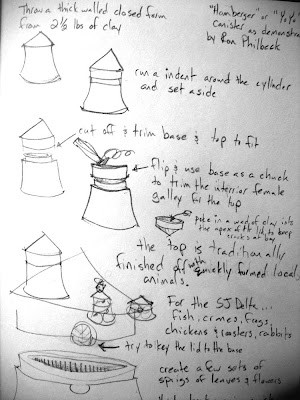 Throw a thick walled closed form
from 2½ lbs of clay
"Hamberger" or "YoYo"
Canister as demonstra
by Ron Philbeck
run a indent around the cylinder
and set aside
cut off & trim base & top to fit
flip & use base as a chuck
to trim the interior female
galley for the top
poke in a wad of clay into
the apex of the lid, to keep
cracks at bay
the top is traditionally
finished off with quickly formed local
animals.
For the SJ Delta...
fish, cranes, frogs,
chickens & roosters, rabbits
try to key the lid to the base
create a few sets of
sprigs of leaves & flowers